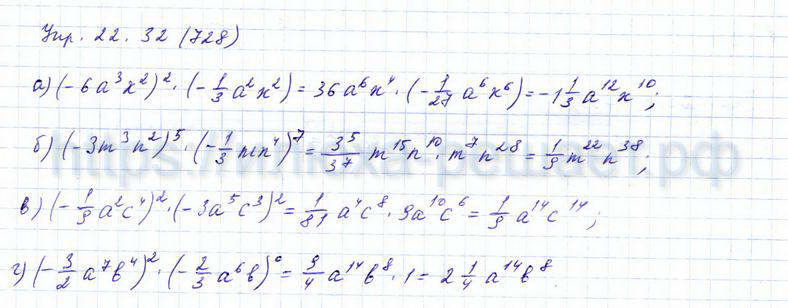 Упр. 22. 32 (728)
а) (-6a³x²)² · (-1/3 a²x²) = 36a⁶x⁴ · (-1/27 a⁶x⁶) = -1 1/3 a¹²x¹⁰;
б) (-3m³n²)⁵ · (-1/3 mn⁴)⁷ = 3⁵/3⁷ m¹⁵n¹⁰ · m⁷n²⁸ = 1/9 m²²n³⁸;
в) (-1/9 a²c⁴)² · (-3a⁵c³)² = 1/81 a⁴c⁸ · 9a¹⁰c⁶ = 1/9 a¹⁴c¹⁴;
г) (-3/2 a⁷b⁴)² · (-2/3 a⁶b)⁰ = 9/4 a¹⁴b⁸ · 1 = 2 1/4 a¹⁴b⁸.